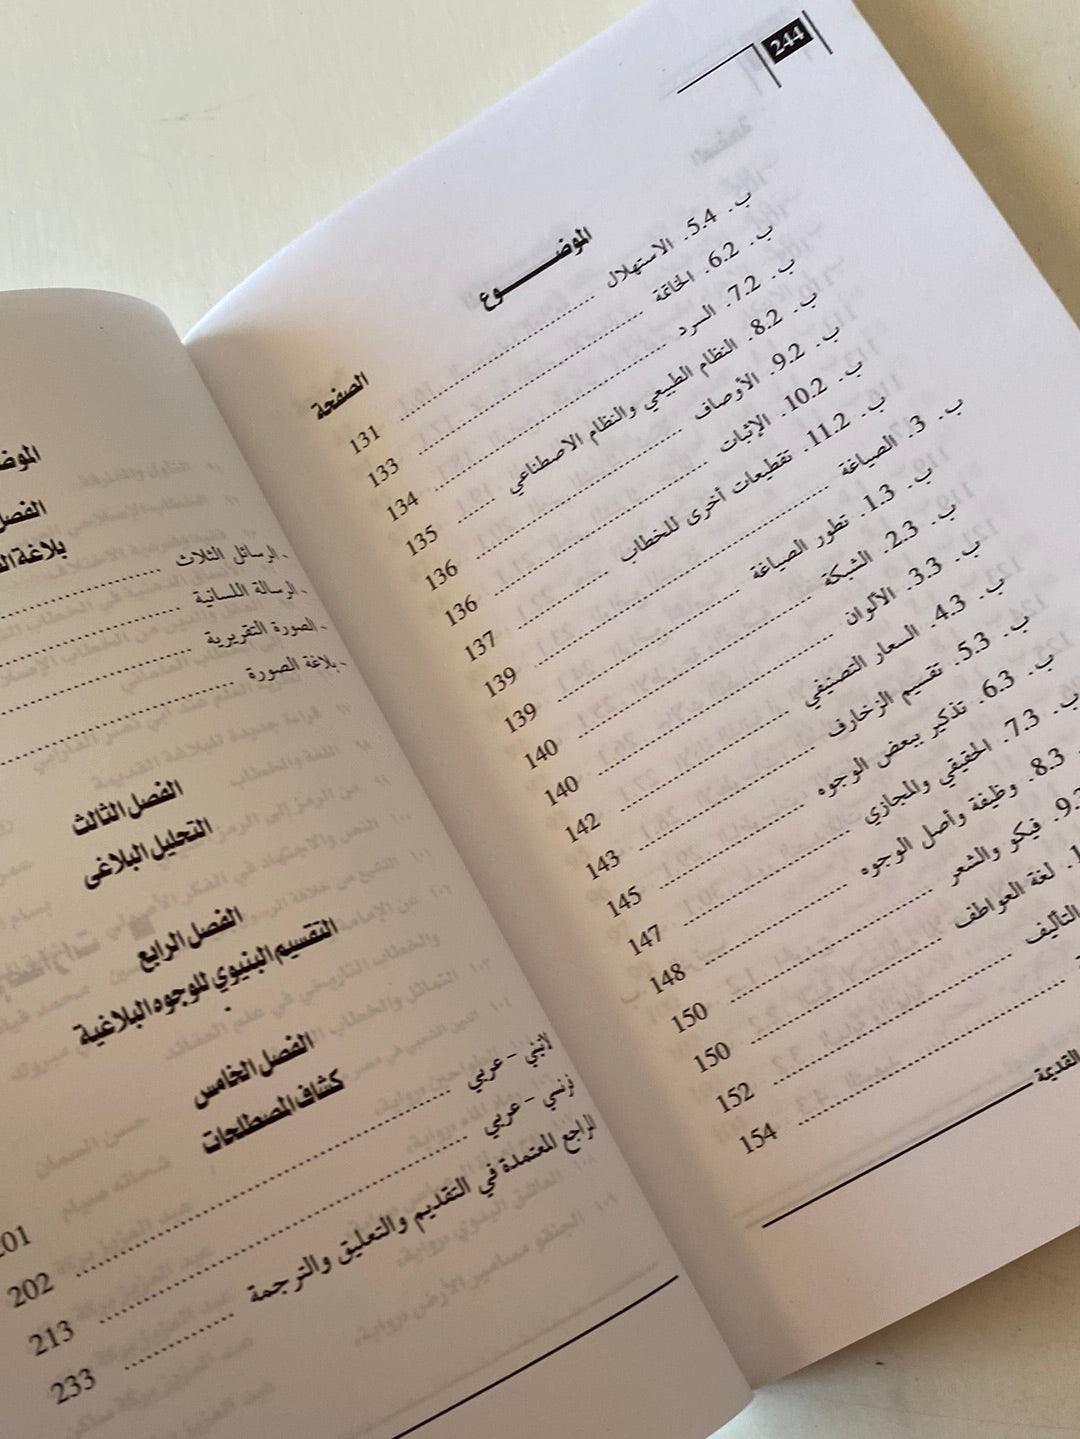 244
الموضـــــوع
الصفحة
ب. 5.4. الاستهلال ........ 131
ب. 6.2. الخاتمة ........ 133
ب. 7.2. السرد ........ 134
ب. 8.2. النظام الطبيعي والنظام الاصطناعي ........ 135
ب. 9.2. الأوصاف ........ 136
ب. 10.2. الإثبات ........ 136
ب. 11.2. تقطيعات أخرى للخطاب ........ 137
ب. 3. الصياغة ........ 139
ب. 1.3. تطور الصياغة ........ 139
ب. 2.3. الشبكة ........ 140
ب. 3.3. الألوان ........ 140
ب. 4.3. السعار التصنيفي ........ 142
ب. 5.3. تقسيم الزخارف ........ 143
ب. 6.3. تذكير ببعض الوجوه ........ 145
ب. 7.3. الحقيقي والمجازي ........ 147
8.3. وظيفة وأصل الوجوه ........ 148
فيكو والشعر ........ 150
لغة العواطف ........ 150
التأليف ........ 152
........ 154
القديمة
الفصل
بلاغة
الرسائل الثلاث ........
الرسالة اللسانية ........
الصورة التقريرية ........
بلاغة الصورة ........
الفصل الثالث
التحليل البلاغي
الفصل الرابع
التقسيم البنيوي للوجوه البلاغية
الفصل الخامس
كشاف المصطلحات
لاتيني - عربي ........ 202
فرنسي - عربي ........ 213
المراجع المعتمدة في التقديم والتعليق والترجمة ........ 233